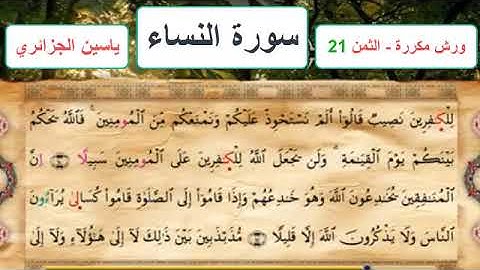 ورش مكررة - الثمن 21
سورة النساء
ياسين الجزائري
لِلْكٰفِرِينَ نَصِيبٌ قَالُوٓا۟ أَلَمْ نَسْتَحْوِذْ عَلَيْكُمْ وَنَمْنَعْكُم مِّنَ ٱلْمُومِنِينَ فَٱللَّهُ يَحْكُمُ
بَيْنَكُمْ يَوْمَ ٱلْقِيَٰمَةِ وَلَنْ يَّجْعَلَ ٱللَّهُ لِلْكٰفِرِينَ عَلَى ٱلْمُومِنِينَ سَبِيلًا إِنَّ
ٱلْمُنَٰفِقِينَ يُخَٰدِعُونَ ٱللَّهَ وَهُوَ خَٰدِعُهُمْ وَإِذَا قَامُوٓا۟ إِلَى ٱلصَّلَوٰةِ قَامُوا۟ كُسَالىٰ يُرَآءُونَ
ٱلنَّاسَ وَلَا يَذْكُرُونَ ٱللَّهَ إِلَّا قَلِيلًا مُّذَبْذَبِينَ بَيْنَ ذَٰلِكَ لَآ إِلَىٰ هَٰٓؤُلَآءِ وَلَآ إِلَىٰ